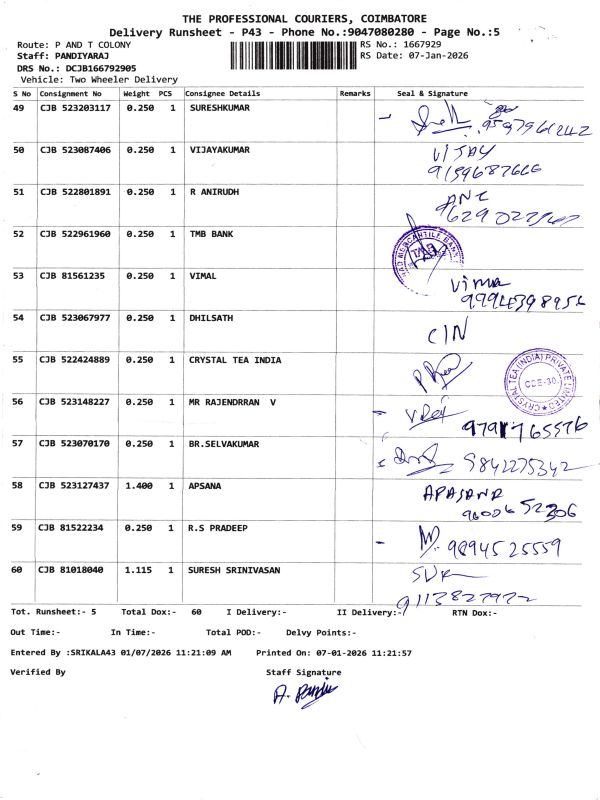 THE PROFESSIONAL COURIERS, COIMBATORE
Delivery Runsheet - P43 - Phone No.:9047080280 - Page No.:5
Route: P AND T COLONY RS No.: 1667929
Staff: PANDIYARAJ RS Date: 07-Jan-2026
DRS No.: DCJB166792905
Vehicle: Two Wheeler Delivery
S No Consignment No Weight PCS Consignee Details Remarks Seal & Signature
49 CJB 523203117 0.250 1 SURESHKUMAR
50 CJB 523087406 0.250 1 VIJAYAKUMAR VIJAY
9159687666
51 CJB 522801891 0.250 1 R ANIRUDH
52 CJB 522961960 0.250 1 TMB BANK
53 CJB 81561235 0.250 1 VIMAL
54 CJB 523067977 0.250 1 DHILSATH CIN
55 CJB 522424889 0.250 1 CRYSTAL TEA INDIA CRYSTAL TEA (INDIA) PRIVATE LIMITED
56 CJB 523148227 0.250 1 MR RAJENDRRAN V
9791765576
57 CJB 523070170 0.250 1 BR.SELVAKUMAR 9842275342
58 CJB 523127437 1.400 1 APSANA APASANA
9600652306
59 CJB 81522234 0.250 1 R.S PRADEEP 9894525559
60 CJB 81018040 1.115 1 SURESH SRINIVASAN
Tot. Runsheet:- 5 Total Dox:- 60 I Delivery:- II Delivery:- RTN Dox:-
Out Time:- In Time:- Total POD:- Delvy Points:-
Entered By :SRIKALA43 01/07/2026 11:21:09 AM Printed On: 07-01-2026 11:21:57
Verified By Staff Signature